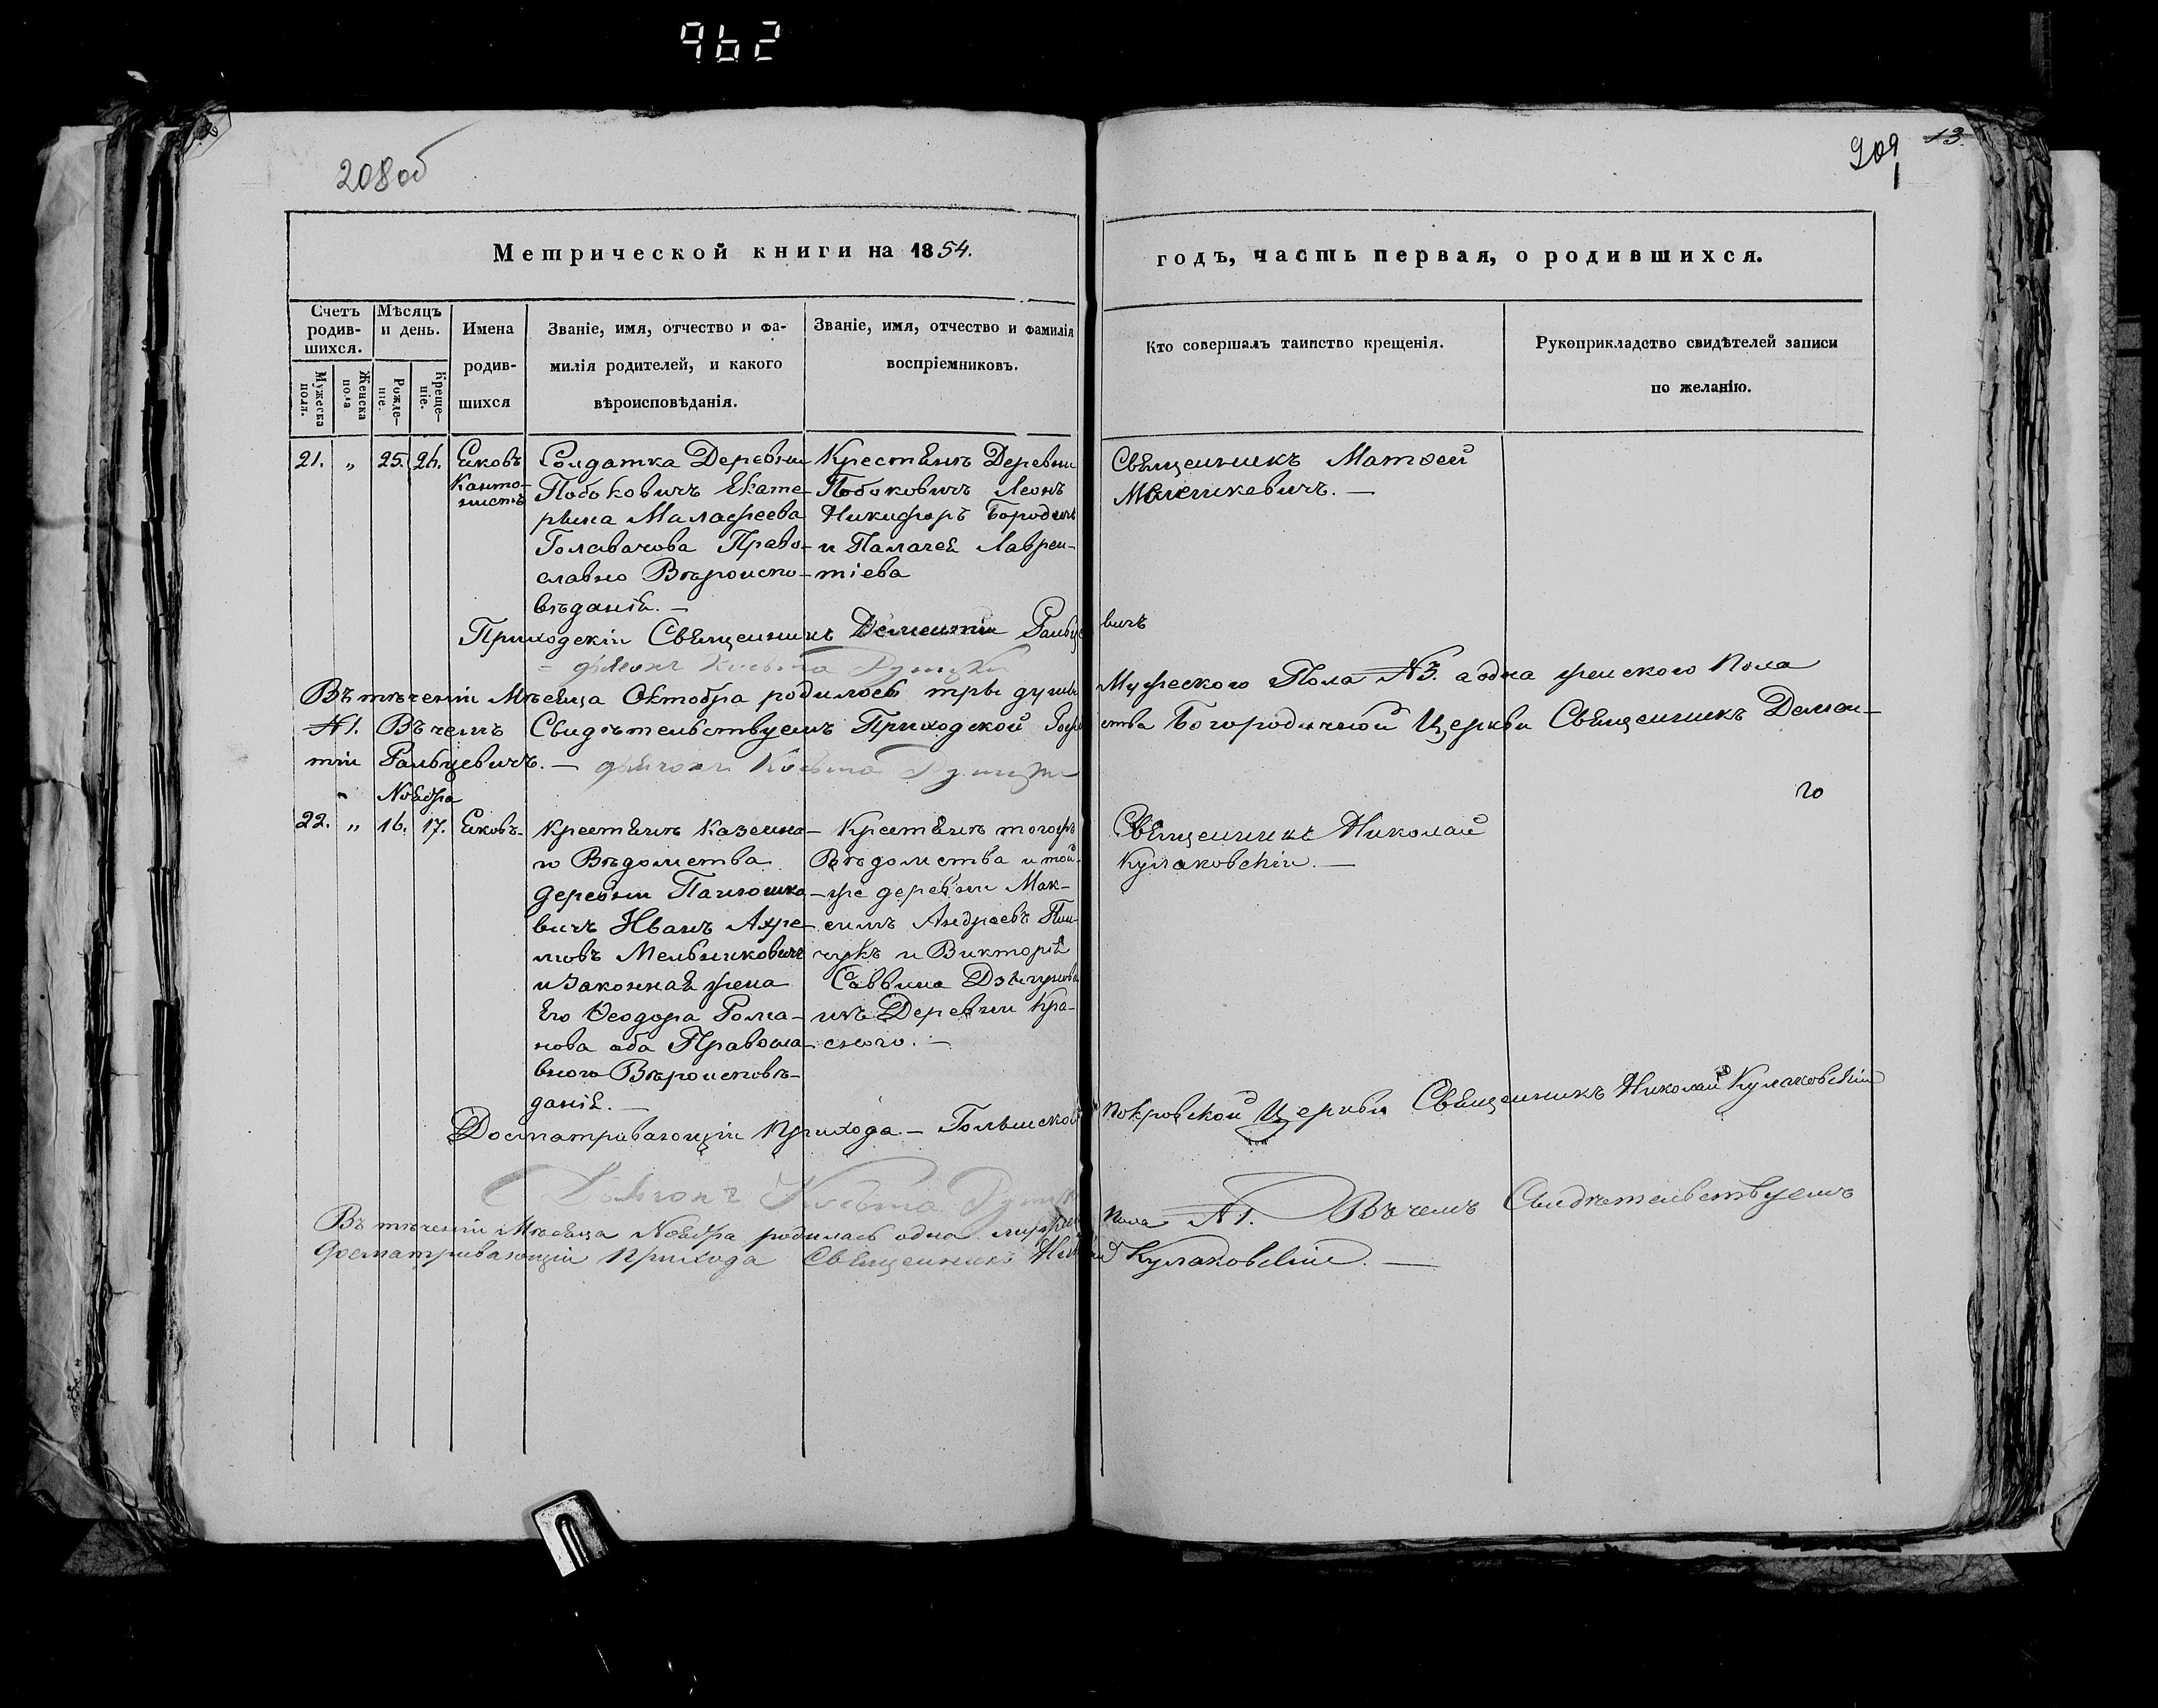 962
208об
209
13.
Метрической книги на 1854.
годъ, часть первая, о родившихся.
Счетъ родившихся.
Мужеска пола.
Женска пола.
Мѣсяцъ и день.
Рожде-ніе.
Креще-ніе.
Имена родив-шихся
Званіе, имя, отчество и фа-
милія родителей, и какого
вѣроисповѣданія.
Званіе, имя, отчество и фамилія
воспріемниковъ.
Кто совершалъ таинство крещенія.
Рукоприкладство свидѣтелей записи
по желанію.
21. „ 25. 26. Яковъ
Канто-
нистъ
Солдатка Деревни
Побоковичъ Екате-
рина Малафеева
Головачова Право-
славно Вѣроиспо-
вѣданія. —
Крестьянъ Деревни
Побоковичъ Леонъ
Никифоръ Бородичъ
и Палагея Лаврен-
тіева
Священникъ Матѳей
Малешкевичъ. —
Приходскій Священникъ Дементій Гальце вичъ
Въ теченіи Мѣсяца Октобра родилось три души Мужеского Пола № 3. а одна женского Пола
№ 1. Въ чемъ Свидѣтельствуемъ Приходской Рождества Богородичной Церкви Священникъ Демен-
тій Гальцевичъ. —
Ноября
го
22. „ 16. 17. Яковъ.
Крестьянъ Казенна-
го Вѣдомства
деревни Панюшке-
вичъ Иванъ Ахре-
мовъ Мельниковичъ
и Законная жена
Его Ѳеодора Рома-
нова оба Правосла-
вного Вѣроисповѣ-
данія. —
Крестьянъ тогожъ
Вѣдомства и той-
же деревни Мак-
симъ Андреевъ Пин-
чукъ и Викторія
Саввина
изъ Деревни Кра-
сного. —
Священникъ Николай
Кулаковскій. —
Досматривающій Прихода — Покровской Церкви Священникъ Николай Кулаковскій
Въ теченіи Мѣсяца Ноября родилась одна муже Пола № 1. Въ чемъ Свидѣтельствуемъ
досматривающій Прихода Священникъ Николай Кулаковскій. —